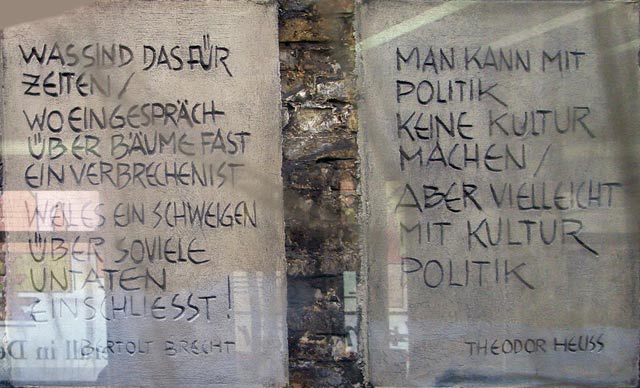 WAS SIND DAS FÜR
ZEITEN /
WO EIN GESPRÄCH
ÜBER BÄUME FAST
EIN VERBRECHEN IST
WEIL ES EIN SCHWEIGEN
ÜBER SOVIELE
UNTATEN
EINSCHLIESST!
BERTOLT BRECHT
MAN KANN MIT
POLITIK
KEINE KULTUR
MACHEN /
ABER VIELLEICHT
MIT KULTUR
POLITIK
THEODOR HEUSS